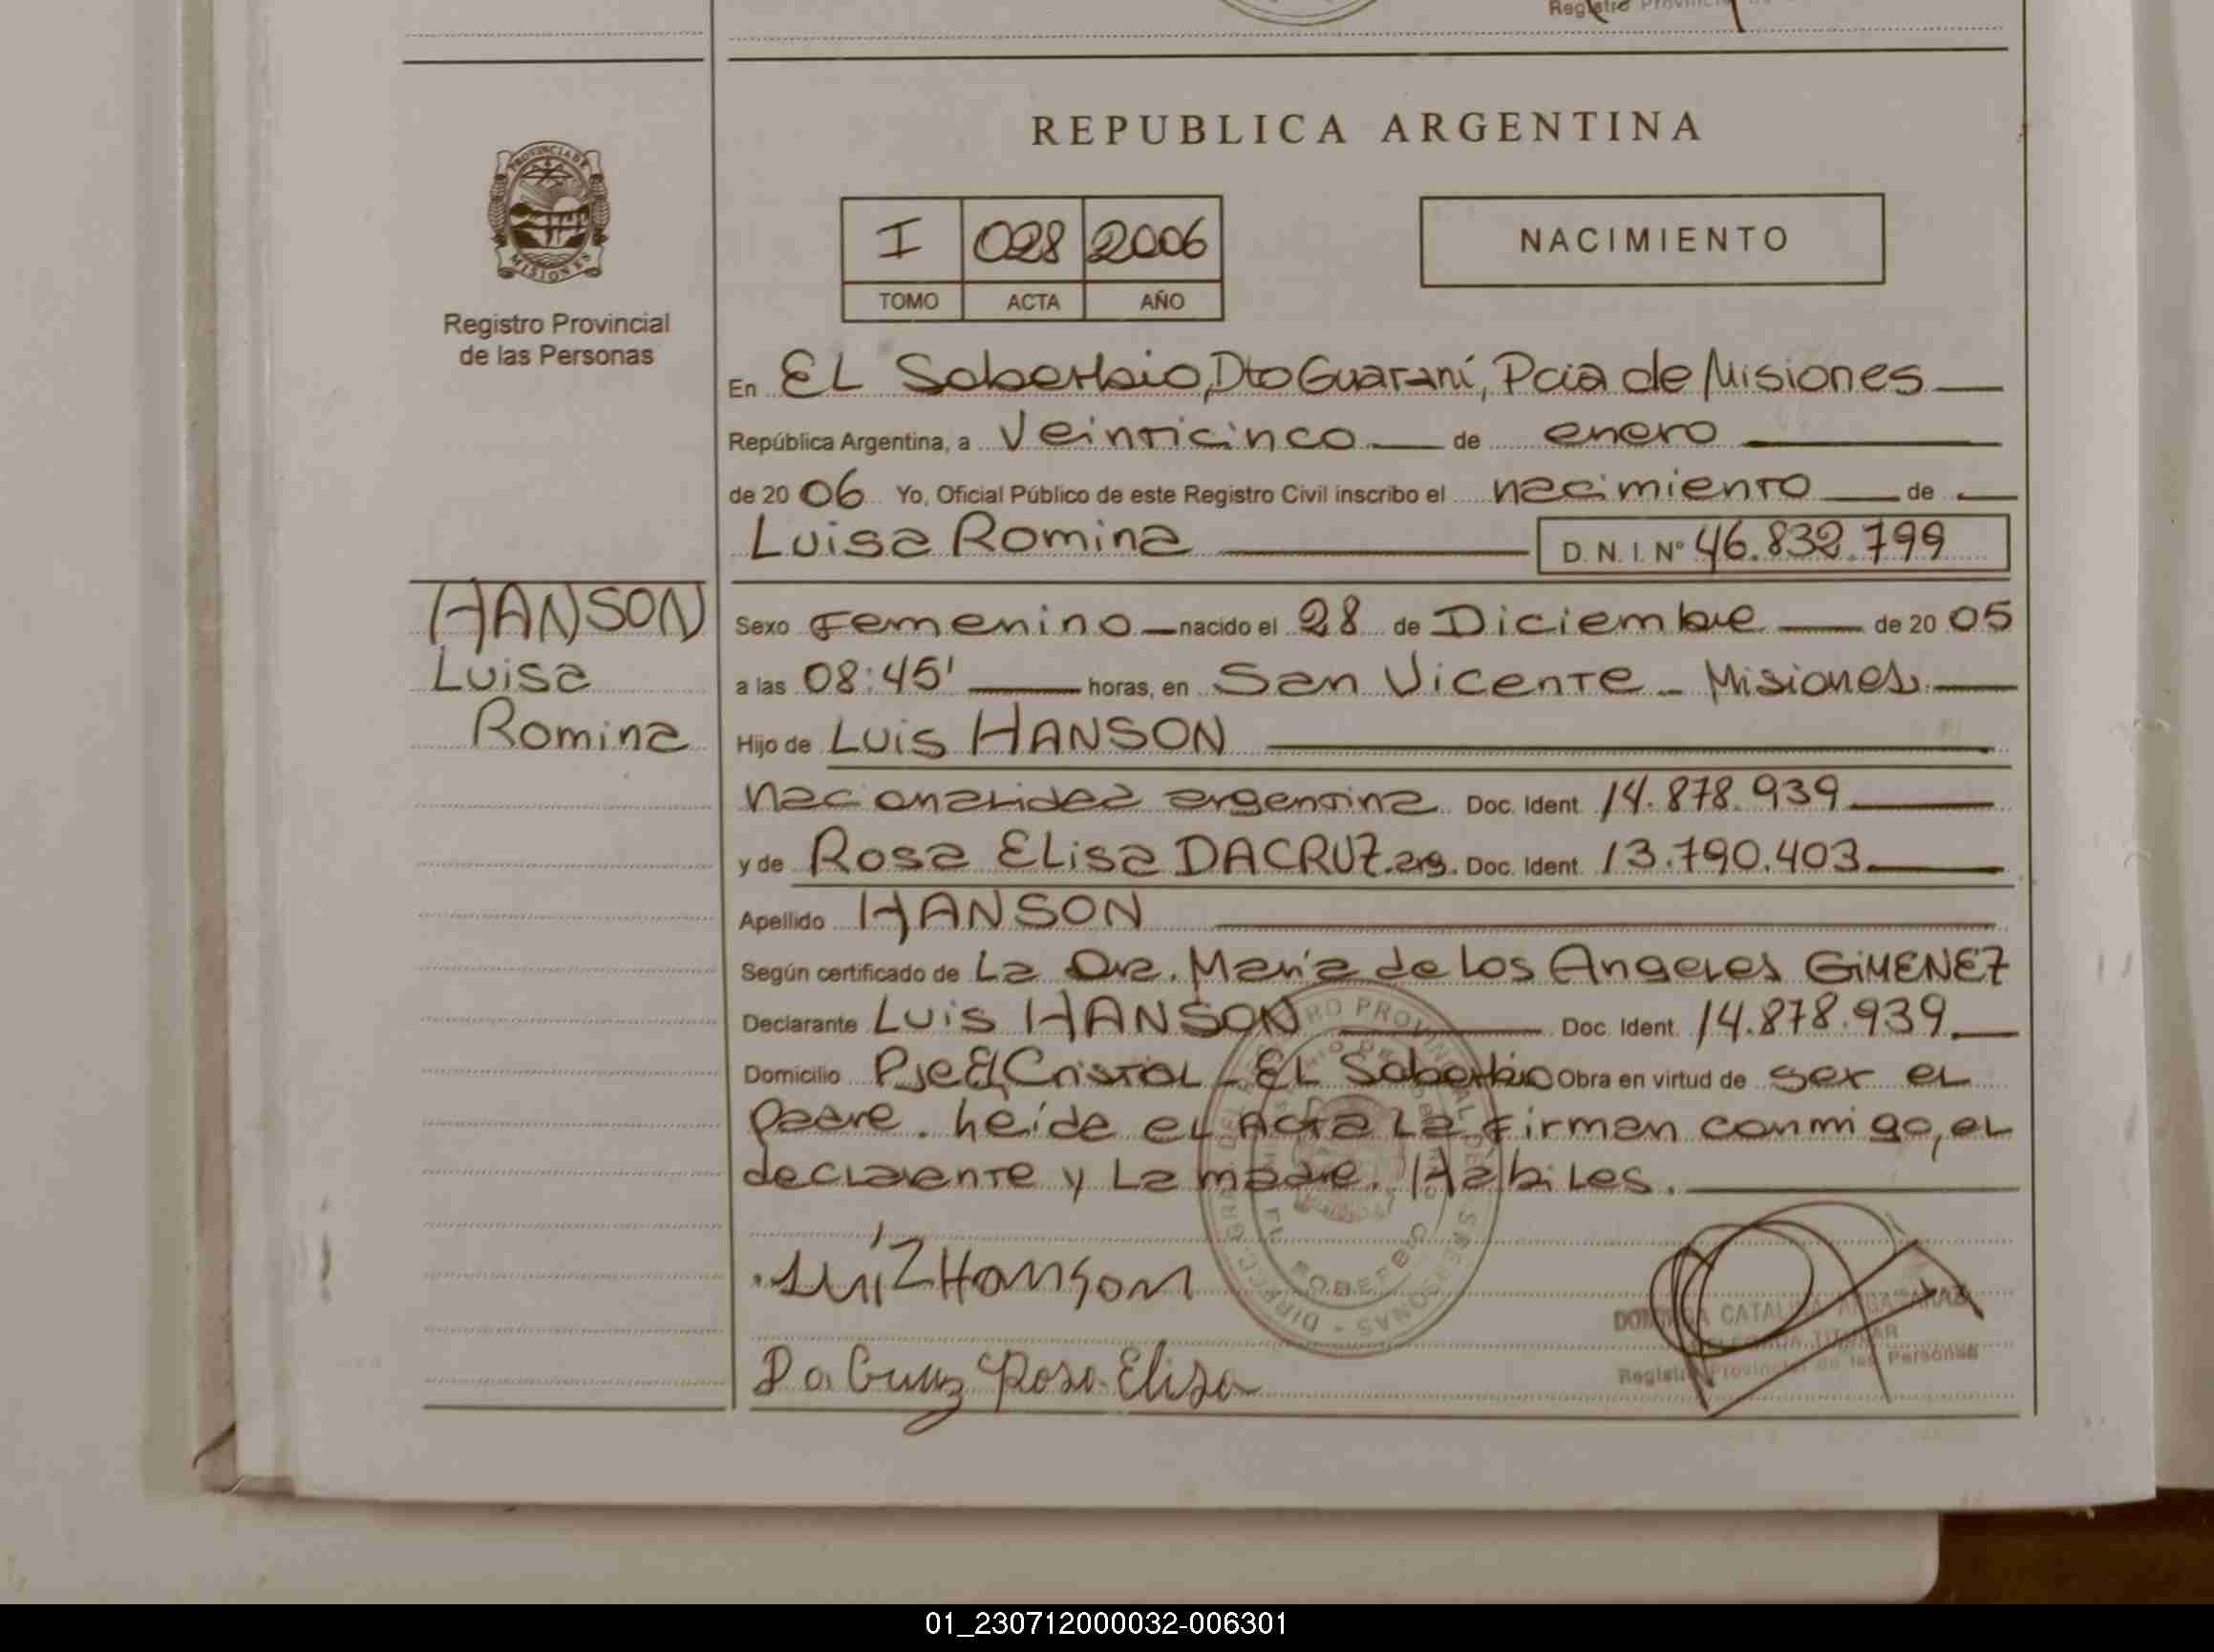 Registro Provincial
REPUBLICA ARGENTINA
PROVINCIA DE
MISIONES
Registro Provincial
de las Personas
I 028 2006
TOMO ACTA AÑO
NACIMIENTO
En EL Soberbio, Dto Guaraní, Pcia de Misiones
República Argentina, a Veinticinco de enero
de 20 06 Yo, Oficial Público de este Registro Civil inscribo el nacimiento de
Luisa Romina D.N.I. Nº 46.832.799
HANSON
Luisa
Romina
Sexo Femenino nacido el 28 de Diciembre de 20 05
a las 08:45' horas, en San Vicente - Misiones
Hijo de Luis HANSON
nacionalidad argentina Doc. Ident. 14.878.939
y de Rosa Elisa DACRUZ. arg. Doc. Ident. 13.790.403
Apellido HANSON
Según certificado de La Dra. María de Los Angeles GIMENEZ
Declarante Luis HANSON Doc. Ident. 14.878.939
Domicilio Pje El Cristal - EL Soberbio Obra en virtud de ser el
Padre. Leída el Acta La Firman conmigo, el
declarante y La madre. Hábiles.
Luíz Hanson
Da Cruz Rosa Elisa
CATALINA
TITULAR
Registro Provincial de las Personas
01_230712000032-006301